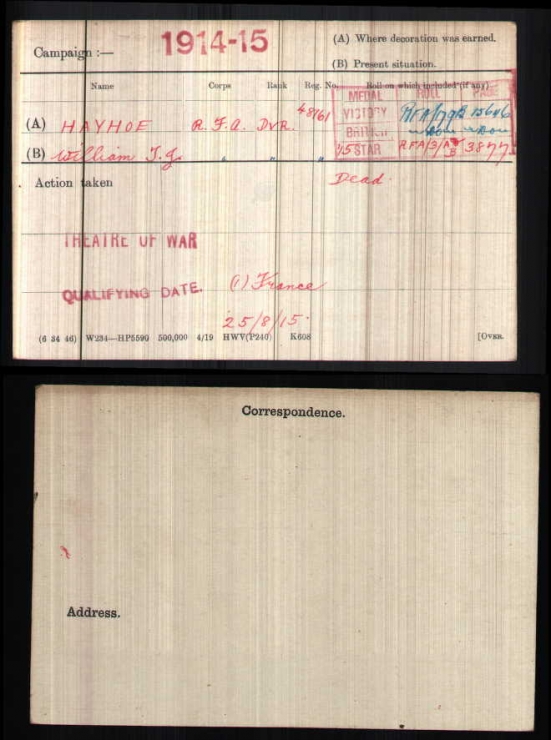 1914-15
Campaign :—
(A) Where decoration was earned.
(B) Present situation.
Name Corps Rank Reg. No. Roll on which included (if any)
MEDAL ROLL PAGE
(A) HAYHOE R.F.A. DVR. 48761 VICTORY RFA/179B 15646
BRITISH - Do - - Do -
(B) William T.J. " " " 15 STAR RFA/3/ 3877
Action taken Dead.
THEATRE OF WAR
QUALIFYING DATE. (1) France
25/8/15.
(6 34 46) W234—HP5590 500,000 4/19 HWV(P240) K608 [OVER.
Correspondence.
Address.